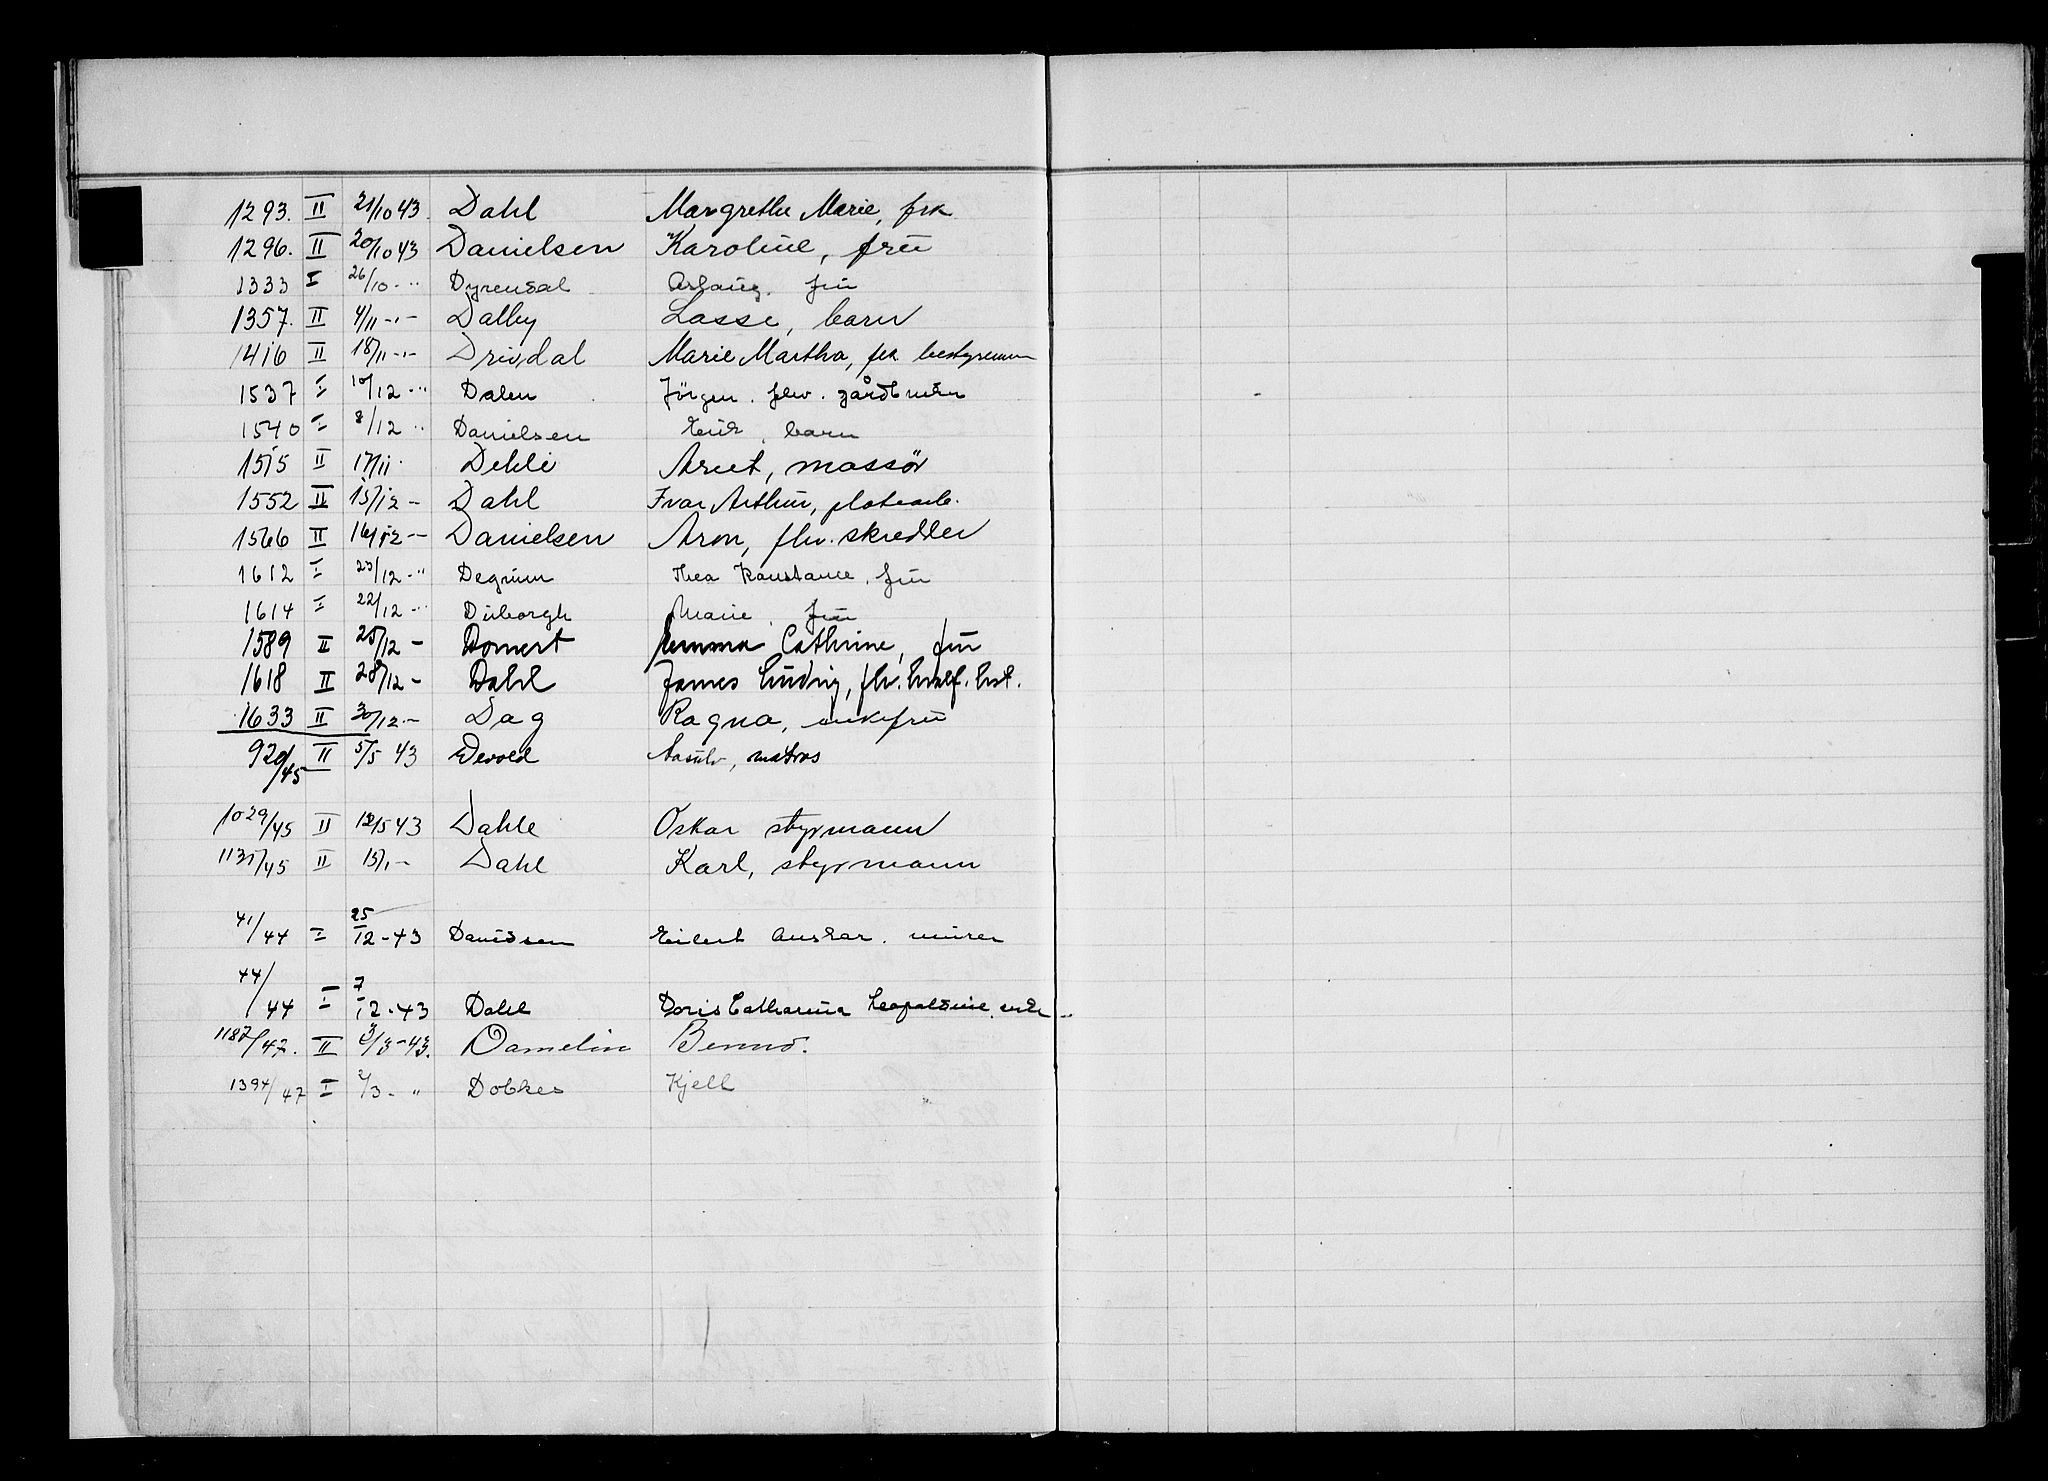 1293. II 21/10 43. Dahl Margrethe Marie, frk
1296. II 20/10 43 Danielsen Karoline, frü
1333 I 26/10 - " Dyrendal Aslaug. frü
1357. II 4/11 -"- Dalby Lasse, barn
1416 II 18/11 -"- Drivdal Marie Martha, frk bestyrerinne
1537 I 10/12 - " Dalen Jörgen. fhv. gårdbruker
1540 I 8/12 " Danielsen Eirik, barn
1515 II 17/11 - Dehli Arnt, massör
1552 II 15/12 - Dahl Ivar Arthur, platearb.
1566 II 16/12 - Danielsen Aron, fhv. skredder
1612 I 23/12 - " Degrüm Thea Konstance, frü
1614 I 22/12 - " Düborgh Marie. frü
1589 II 25/12 - Domert Emma Cathrine, frü
1618 II 28/12 - Dahl James Lüdvig, fhv.
1633 II 30/12 - Dag Ragna, enkefrü
920/45 II 5/5 43 Devold Aasulv, matros
1029/45 II 12/5 43 Dahle Oskar styrmann
1135/45 II 15/1 - Dahl Karl, styrmann
41/44 I 25/12 - 43 Davidsen Eilert Anskar. mürer
44/44 I 7/12 - 43 Dahl Doris Catharina Leopoldine, enke
1187/47. II 3/3 - 43. Damelin Benno.
1394/47 I 2/3 - " Dobkes Kjell